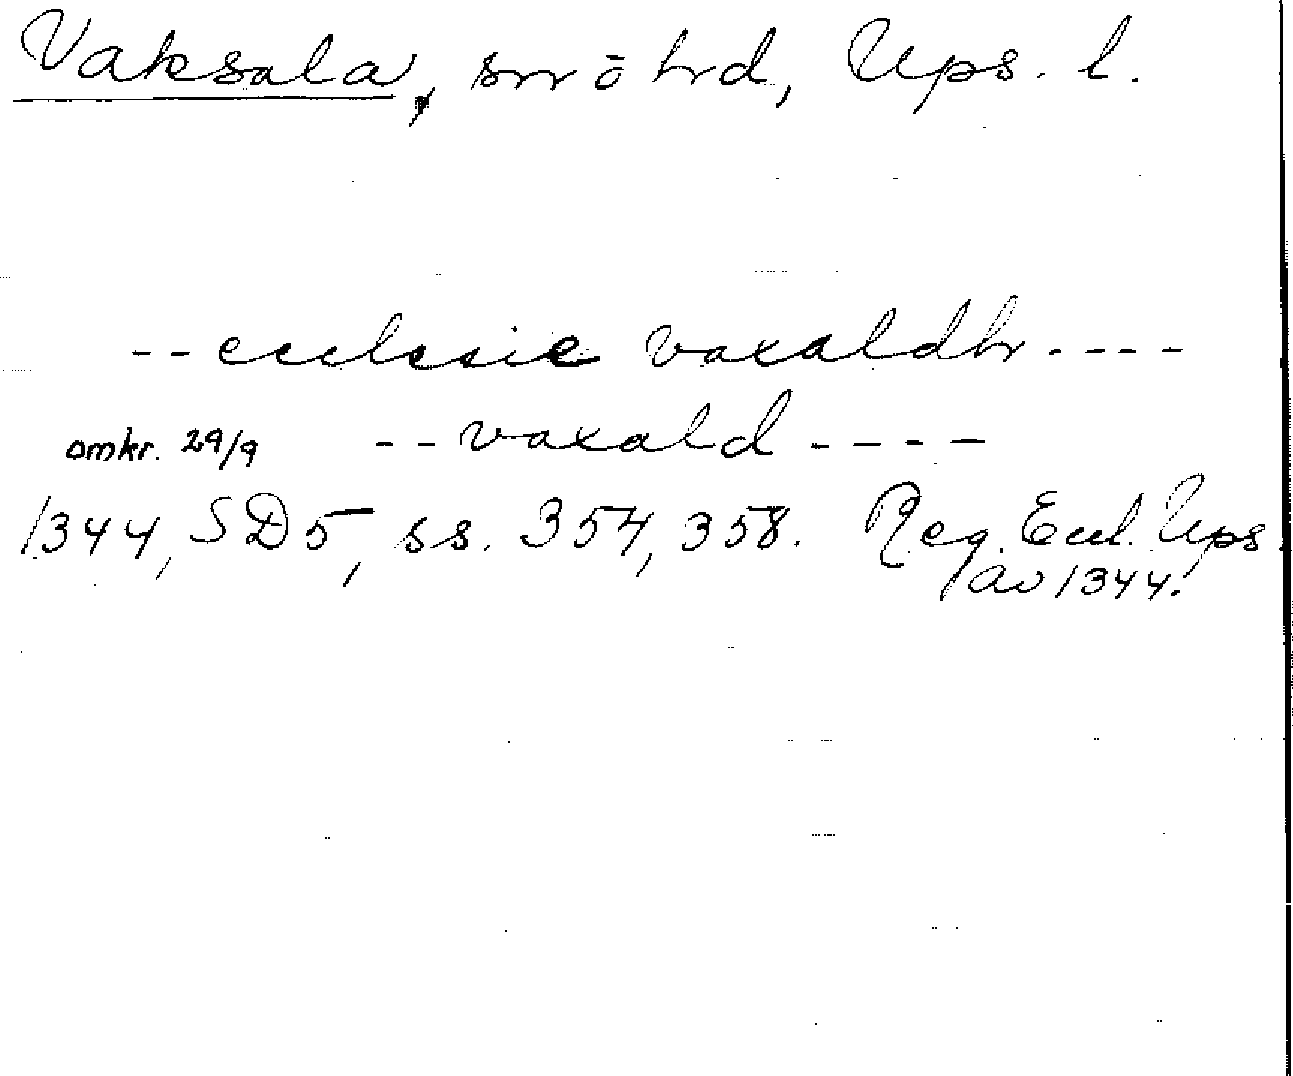 Vaksala, sn o hd, Ups. l.
-- ecclesie vaxaldhr ----
omkr. 29/9 -- vaxald ----
1344, SD5, ss. 354, 358. Reg. Eccl. Ups
av 1344.